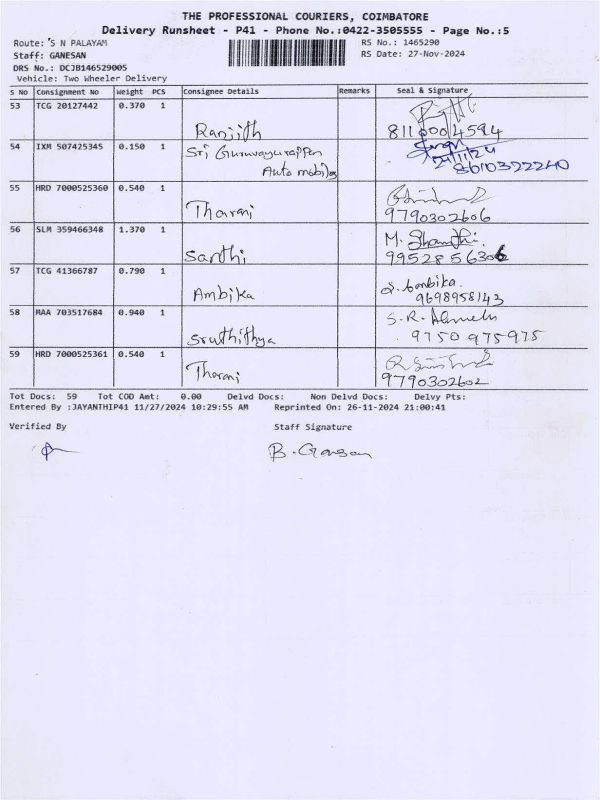 THE PROFESSIONAL COURIERS, COIMBATORE
Delivery Runsheet - P41 - Phone No.:0422-3505555 - Page No.:5
Route: S N PALAYAM
RS No.: 1465290
Staff: GANESAN
RS Date: 27-Nov-2024
DRS No.: DCJB146529005
Vehicle: Two Wheeler Delivery
S No Consignment No Weight PCS Consignee Details Remarks Seal & Signature
53 TCG 20127442 0.370 1 Ranjith 8110004594
54 IXM 507425345 0.150 1 Sri Guruvayurappan
Automobiles 8610322240
55 HRD 7000525360 0.540 1 Tharani 9790302606
56 SLM 359466348 1.370 1 Santhi M. Shanthi.
9952856306
57 TCG 41366787 0.790 1 Ambika S. Ambika.
9698958143
58 MAA 703517684 0.940 1 Sruthithya S.R.
9750 975975
59 HRD 7000525361 0.540 1 Tharani 9790302602
Tot Docs: 59 Tot COD Amt: 0.00 Delvd Docs: Non Delvd Docs: Delvy Pts:
Entered By :JAYANTHIP41 11/27/2024 10:29:55 AM Reprinted On: 26-11-2024 21:00:41
Verified By Staff Signature
B. Ganesan